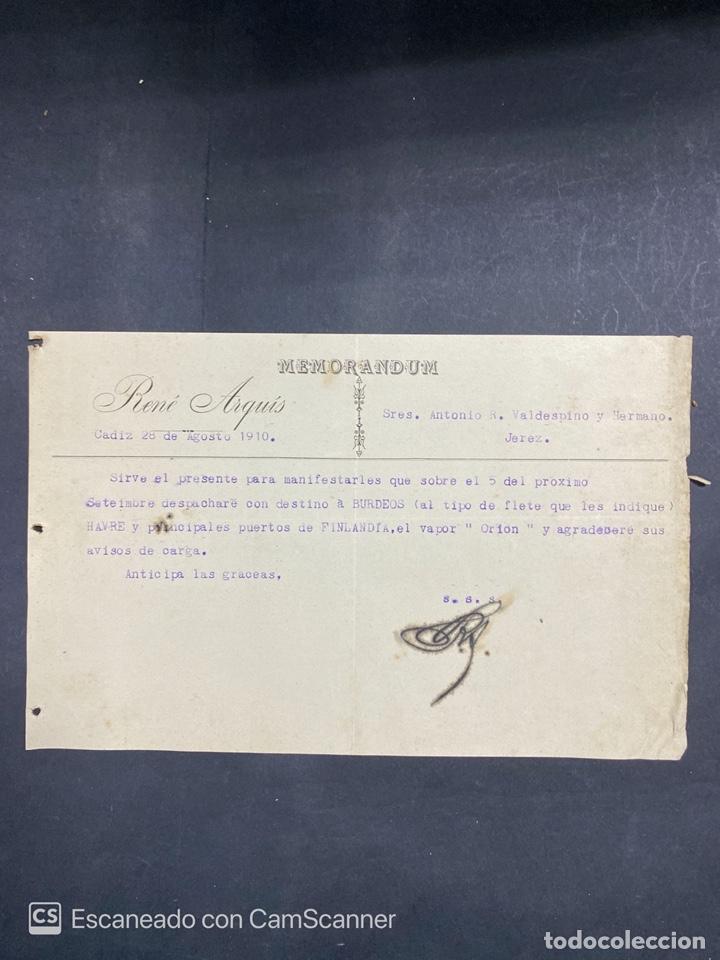 MEMORANDUM
René Arquís
Cadiz 28 de Agosto 1910.
Sres. Antonio R. Valdespino y Hermano.
Jerez.
Sirve el presente para manifestarles que sobre el 5 del próximo
Seteimbre despacharé con destino à BURDEOS (al tipo de flete que les indique)
HAVRE y principales puertos de FINLANDÍA,el vapor " Orion " y agradeceré sus
avisos de carga.
Anticipa las graceas,
s. s. s.
CS Escaneado con CamScanner
todocoleccion